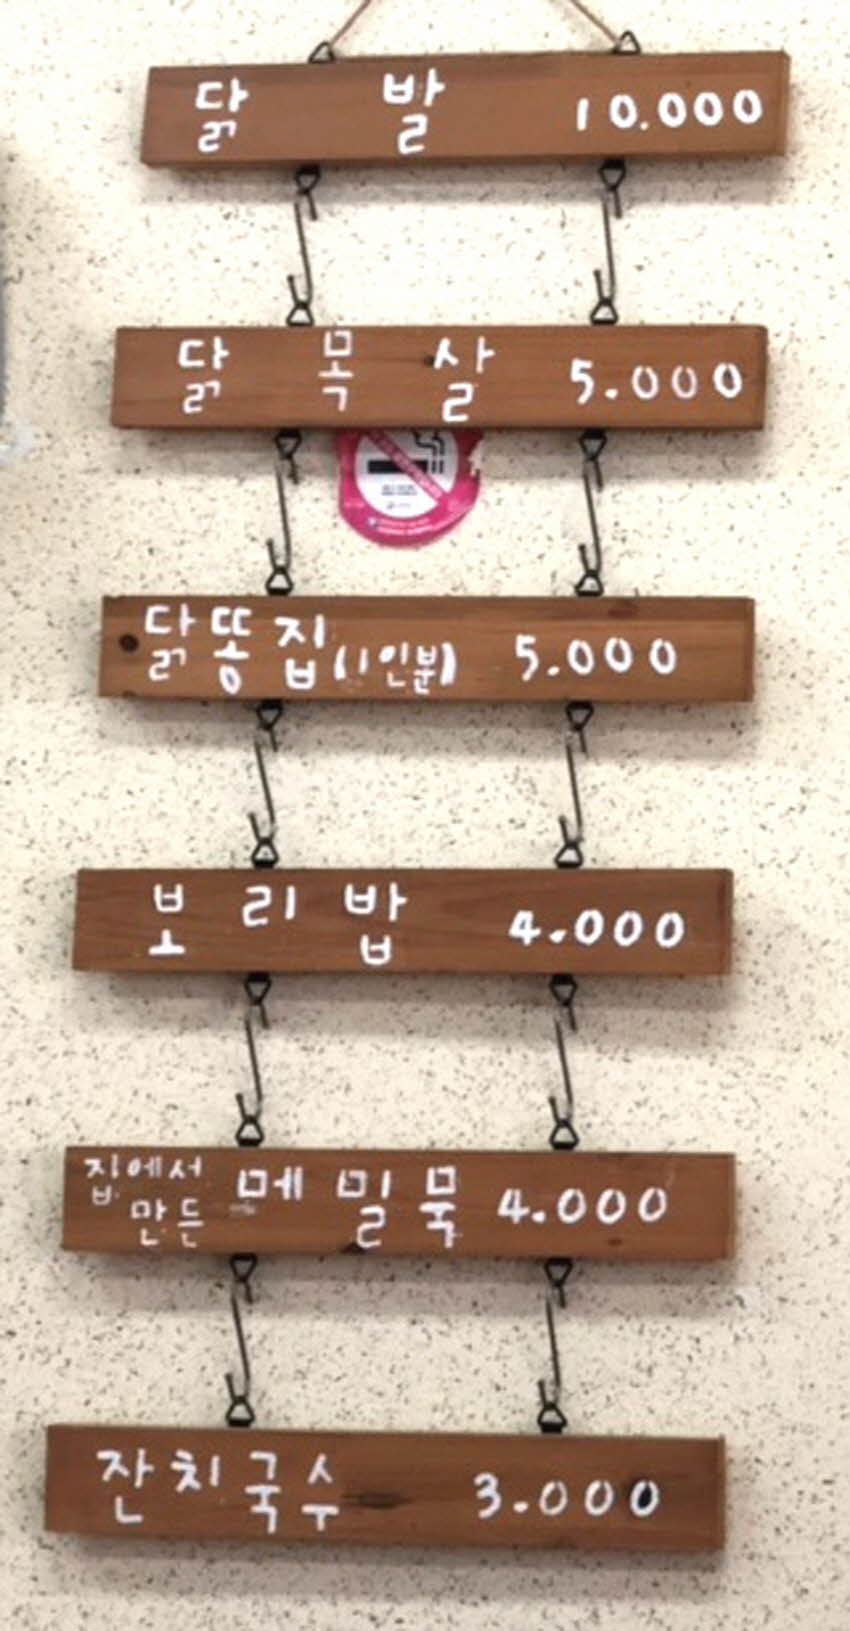 닭 발 10.000
닭 목 살 5.000
닭똥집(1인분) 5.000
보 리 밥 4.000
집에서 만든 메 밀 묵 4.000
잔치국수 3.000